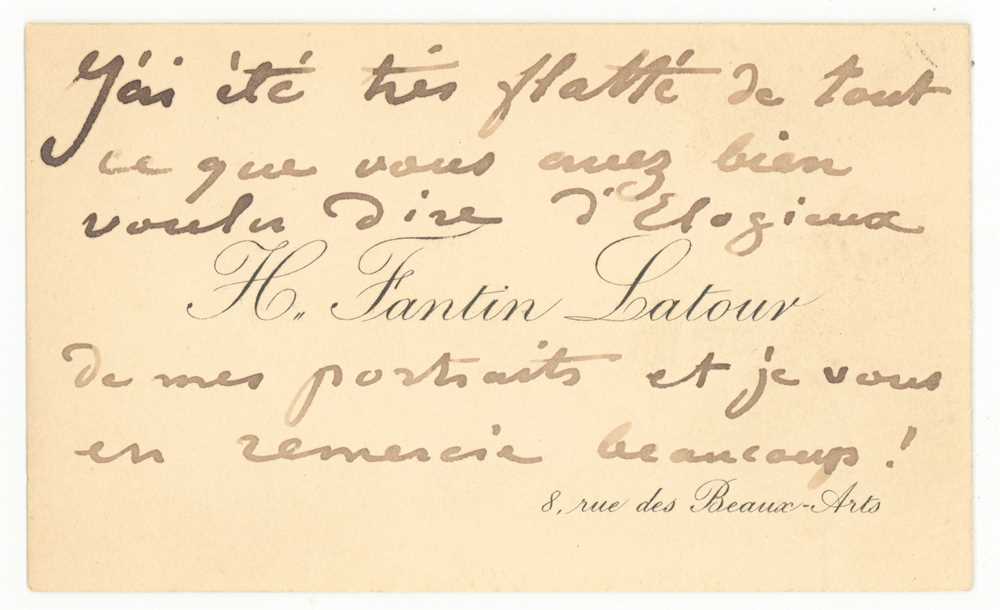 J'ai été très flatté de tout
ce que vous avez bien
voulu dire d'Elogieux
H. Fantin Latour
de mes portraits et je vous
en remercie beaucoup !
8, rue des Beaux-Arts